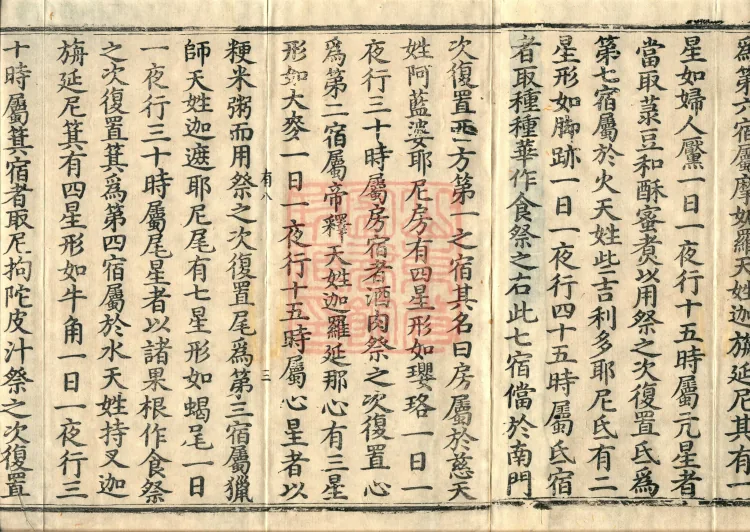 爲第六宿屬摩姤羅天姓迦旃延尼其有一
星如婦人黶一日一夜行十五時屬亢星者
當取菉豆和酥蜜煑以用祭之次復置氐爲
第七宿屬於火天姓些吉利多耶尼氐有二
星形如脚跡一日一夜行四十五時屬氐宿
者取種種華作食祭之右此七宿當於南門
次復置西方第一之宿其名曰房屬於慈天
姓阿藍婆耶尼房有四星形如瓔珞一日一
夜行三十時屬房宿者酒肉祭之次復置心
爲第二宿屬帝釋天姓迦羅延那心有三星
形如大麥一日一夜行十五時屬心星者以
有八
三
粳米粥而用祭之次復置尾爲第三宿屬獵
師天姓迦遮耶尼尾有七星形如蝎尾一日
一夜行三十時屬尾星者以諸果根作食祭
之次復置箕爲第四宿屬於水天姓持叉迦
旃延尼箕有四星形如牛角一日一夜行三
十時屬箕宿者取尼拘陀皮汁祭之次復置